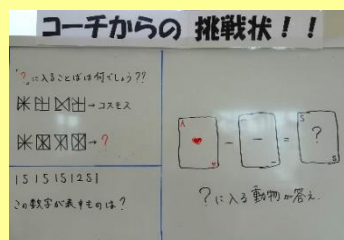 コーチからの 挑戦状！！
「？」に入ることばは何でしょう??
→ コスモス
→ ?
1 S 1 S 1 S 1 2 S 1
この数字が表すものは？
A
S
?
S
?に入る動物が答え.